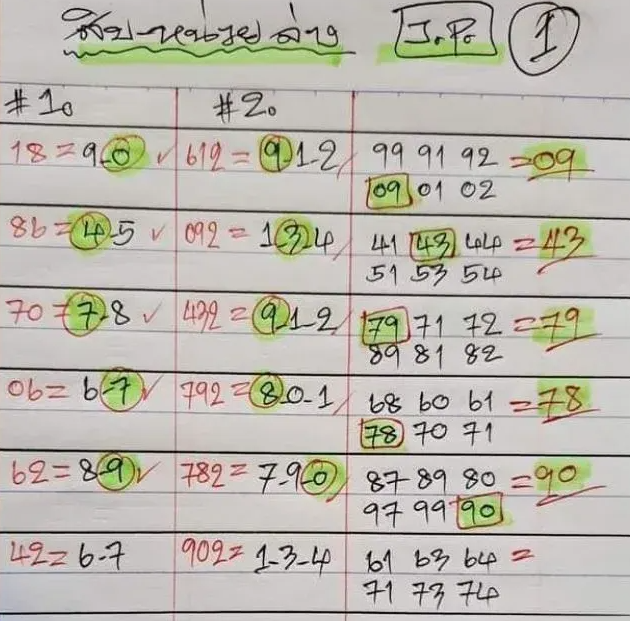 สิบ-หน่วย ล่าง J.P. 1
#1. #2.
18=9-0 ✓ 612=9-1-2 99 91 92 =09
09 01 02
86=4-5 ✓ 092=1-3-4 41 43 44 =43
51 53 54
70=7-8 ✓ 432=9-1-2 79 71 72 =79
89 81 82
06=6-7 ✓ 792=8-0-1 68 60 61 =78
78 70 71
62=8-9 ✓ 782=7-9-0 87 89 80 =90
97 99 90
42=6-7 902=1-3-4 61 63 64 =
71 73 74